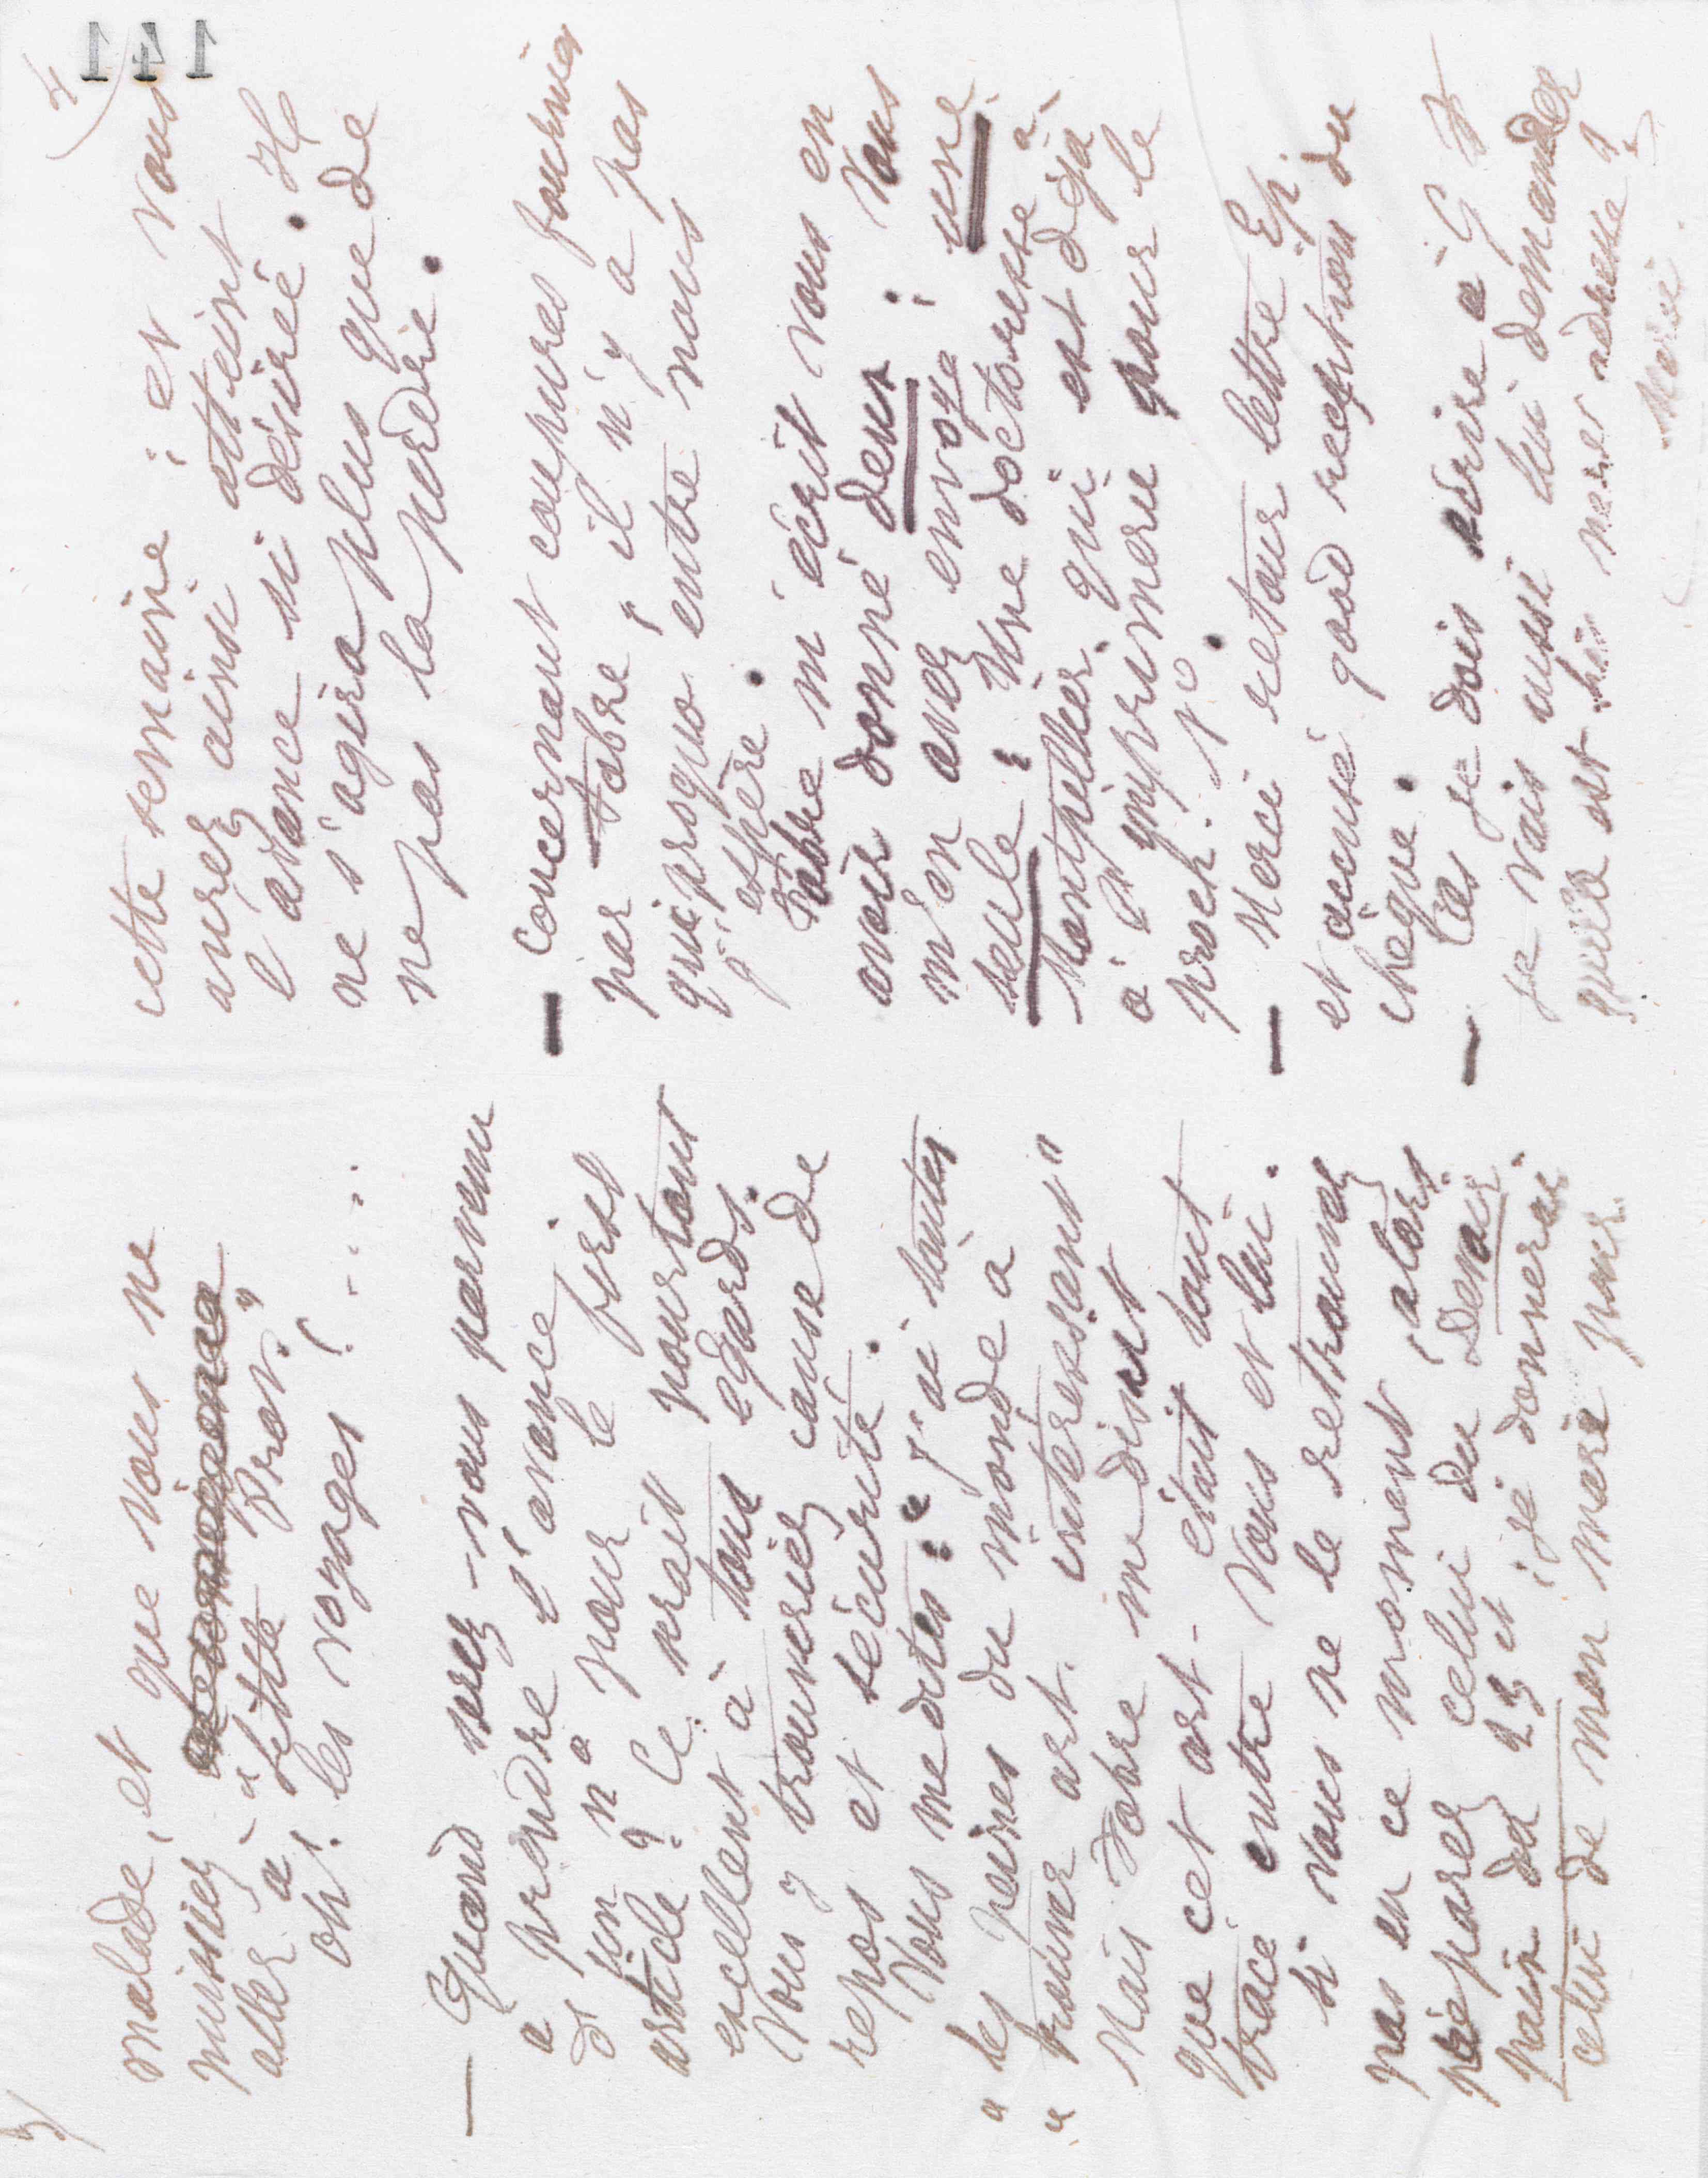 3)
malade, et que vous ne
puissiez
aller à "Petite Prov."
oh! les voyages! ....
— Quand serez-vous parvenu
à prendre l'avance
d'un n° pour le first
article? Ce serait pourtant
excellent à tous égards.
Vous y trouveriez cause de
repos et sécurité.
Vous me dites: "J'ai toutes
"les peines du monde à
"trouver art. intéressant"
Mais Fabre me disait
que cet art. était tout
tracé entre vous et lui.
Si vous ne le retrouvez
pas en ce moment, alors
préparez celui du Devoir
paix du 23 et je donnerai
celui de mon mari pour
4)
141
cette semaine; et vous
aurez ainsi atteint
l'avance si désirée. Il
ne s'agira plus que de
ne pas la perdre.
— Concernant coupures fournies
par Fabre, il n'y a pas
quiproquo entre nous
j'espère.
Fabre m'écrit vous en
avoir donné deux; Vous
m'en avez envoyé une
seule: Une doctoresse à
Montpellier. qui est déjà
à l'imprimerie pour le
proch. N°.
— Merci retour lettre Ep.
et accusé good reception du
chèque.
— Cas je dois écrire à G
je vais aussi lui demander
quelle est son adresse!
Merci.